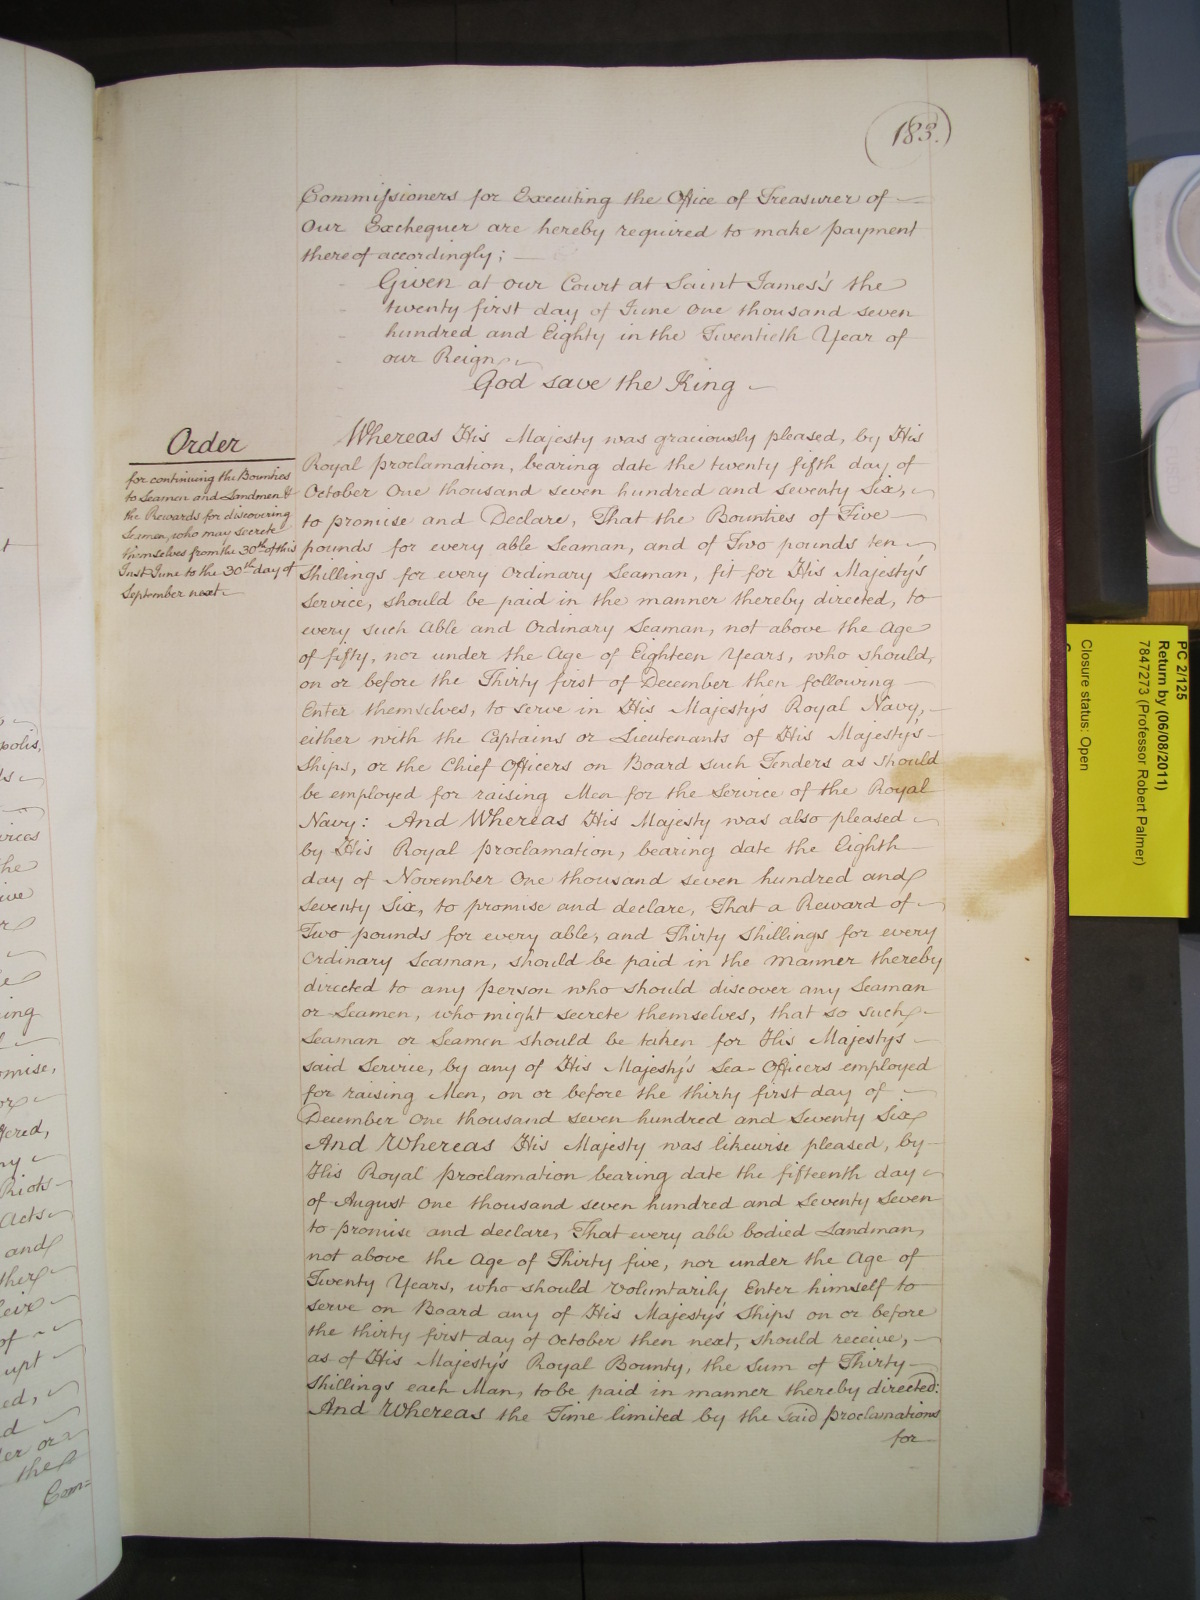 183.
Commissioners for Executing the Office of Treasurer of
Our Exchequer are hereby required to make payment
thereof accordingly;
Given at our Court at Saint James's the
twenty first day of June One thousand seven
hundred and Eighty in the Twentieth Year of
our Reign
God save the King
Order
for continuing the Bounties
to Seamen and Landmen &
the Rewards for discovering
Seamen, who may secrete
themselves from the 30th of this
Inst June to the 30th day of
September next
Whereas His Majesty was graciously pleased, by His
Royal proclamation, bearing date the twenty fifth day of
October One thousand seven hundred and seventy Six,
to promise and Declare, That the Bounties of Five
pounds for every able Seaman, and of Two pounds ten
Shillings for every Ordinary Seaman, fit for His Majesty's
Service, should be paid in the manner thereby directed, to
every such Able and Ordinary Seaman, not above the Age
of fifty, nor under the Age of Eighteen Years, who should,
on or before the Thirty first of December then following
Enter themselves, to serve in His Majesty's Royal Navy,
either with the Captains or Lieutenants of His Majesty's
Ships, or the Chief Officers on Board such Tenders as should
be employed for raising Men for the Service of the Royal
Navy: And Whereas His Majesty was also pleased
by His Royal proclamation, bearing date the Eighth
day of November One thousand seven hundred and
seventy Six, to promise and declare, That a Reward of
Two pounds for every able, and Thirty Shillings for every
Ordinary Seaman, should be paid in the manner thereby
directed to any person who should discover any Seaman
or Seamen, who might secrete themselves, that so such
Seaman or Seamen should be taken for His Majestys
said Service, by any of His Majesty's Sea-Officers employed
for raising Men, on or before the thirty first day of
December One thousand seven hundred and Seventy Six
And Whereas His Majesty was likewise pleased, by
His Royal proclamation bearing date the fifteenth day
of August One thousand seven hundred and Seventy Seven
to promise and declare, That every able bodied Landman,
not above the Age of Thirty five, nor under the Age of
Twenty Years, who should Voluntarily Enter himself to
serve on Board any of His Majesty's Ships on or before
the thirty first day of October then next, should receive,
as of His Majesty's Royal Bounty, the Sum of Thirty
Shillings each Man, to be paid in manner thereby directed:
And Whereas the Time limited by the Said proclamations
for
PC 2/125
Return by (06/08/2011)
7847273 (Professor Robert Palmer)
Closure status: Open